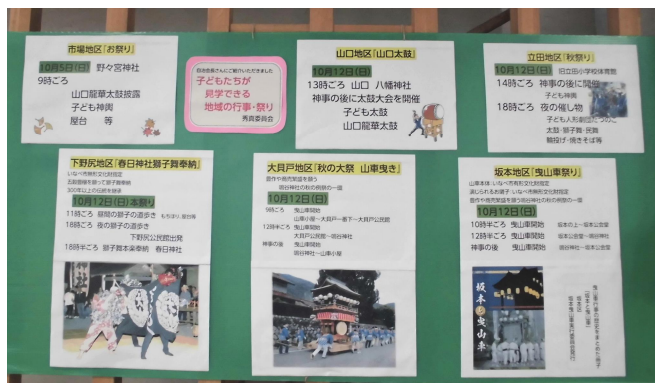 市場地区「お祭り」
10月5日(日) 野々宮神社
9時ごろ
山口龍華太鼓披露
子ども神輿
屋台 等
自治会長さんにご紹介いただきました
子どもたちが
見学できる
地域の行事・祭り
秀真委員会
山口地区「山口太鼓」
10月12日(日)
13時ごろ 山口 八幡神社
神事の後に太鼓大会を開催
子ども太鼓
山口龍華太鼓
立田地区「秋祭り」
10月12日(日) 旧立田小学校体育館
14時ごろ 神事の後に開催
子ども神輿
18時ごろ 夜の催し物
子ども人形劇団たつのこ
太鼓・獅子舞・民舞
輪投げ・焼きそば等
下野尻地区「春日神社獅子舞奉納」
いなべ市無形文化財指定
五穀豊穣を願って獅子舞奉納
300年以上の伝統を継承
10月12日(日)本祭り
11時ごろ 昼間の獅子の道歩き もちほり、屋台等
18時ごろ 夜の獅子の道歩き
下野尻公民館出発
18時半ごろ 獅子舞本楽奉納 春日神社
大貝戸地区「秋の大祭 山車曳き」
豊作や商売繁盛を願う
鳴谷神社の秋の例祭の一環
10月12日(日)
9時ごろ 曳山車開始
山車小屋→大貝戸一番下→大貝戸公民館
12時半ごろ 曳山車開始
大貝戸公民館→鳴谷神社
神事の後 曳山車開始
鳴谷神社→山車小屋
坂本地区「曳山車祭り」
山車本体:いなべ市有形文化財指定
演じられるお囃子:いなべ市無形文化財指定
豊作や商売繁盛を願う鳴谷神社の秋の例祭の一環
10月12日(日)
10時半ごろ 曳山車開始 坂本の上→坂本公会堂
12時半ごろ 曳山車開始 坂本公会堂→鳴谷神社
神事の後 曳山車開始 鳴谷神社→坂本公会堂
坂本の曳山車
曳山車行事の歴史をまとめた冊子
「坂本と曳山車」
坂本区
坂本曳山車実行委員会発行